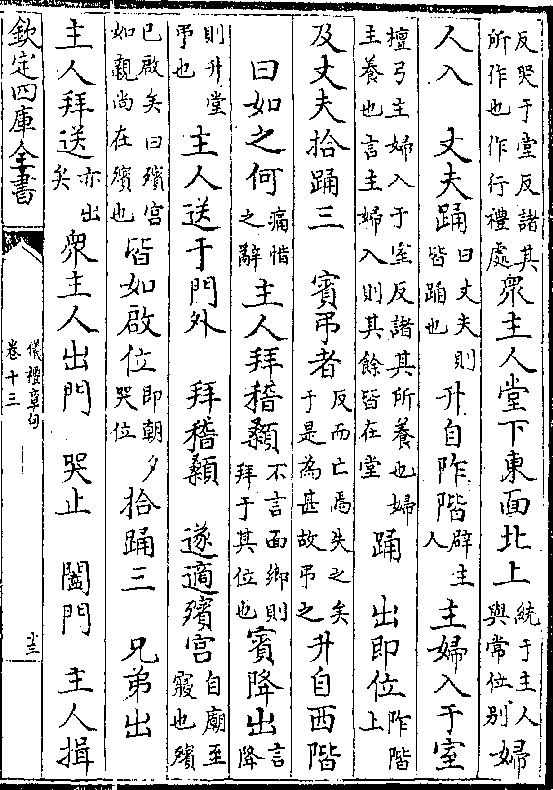 反哭于堂反諸其
所作也作行禮處
衆主人堂下東面北上
統于主人
與常位别
婦
人入　丈夫踊
曰丈夫則
皆踊也
升自阼階
辟主
人
主婦入于室
檀弓主婦入于室反諸其所養也婦
主養也言主婦入則其餘皆在堂
踊　出即位
阼階
上
及丈夫拾踊三　賓弔者
反而亡焉失之矣
于是為甚故弔之
升自西階
曰如之何
痛惜
之辭
主人拜稽顙
不言面鄉則
拜于其位也
賓降出
言
降
則升堂
弔也
主人送于門外　拜稽顙　遂適殯宫
自廟至
寢也殯
已啟矣曰殯宫
如親尚在殯也
皆如啟位
即朝夕
哭位
拾踊三　兄弟出
主人拜送
亦出
矣
衆主人出門　哭止　闔門　主人揖
欽定四庫全書
儀禮章句
卷十三